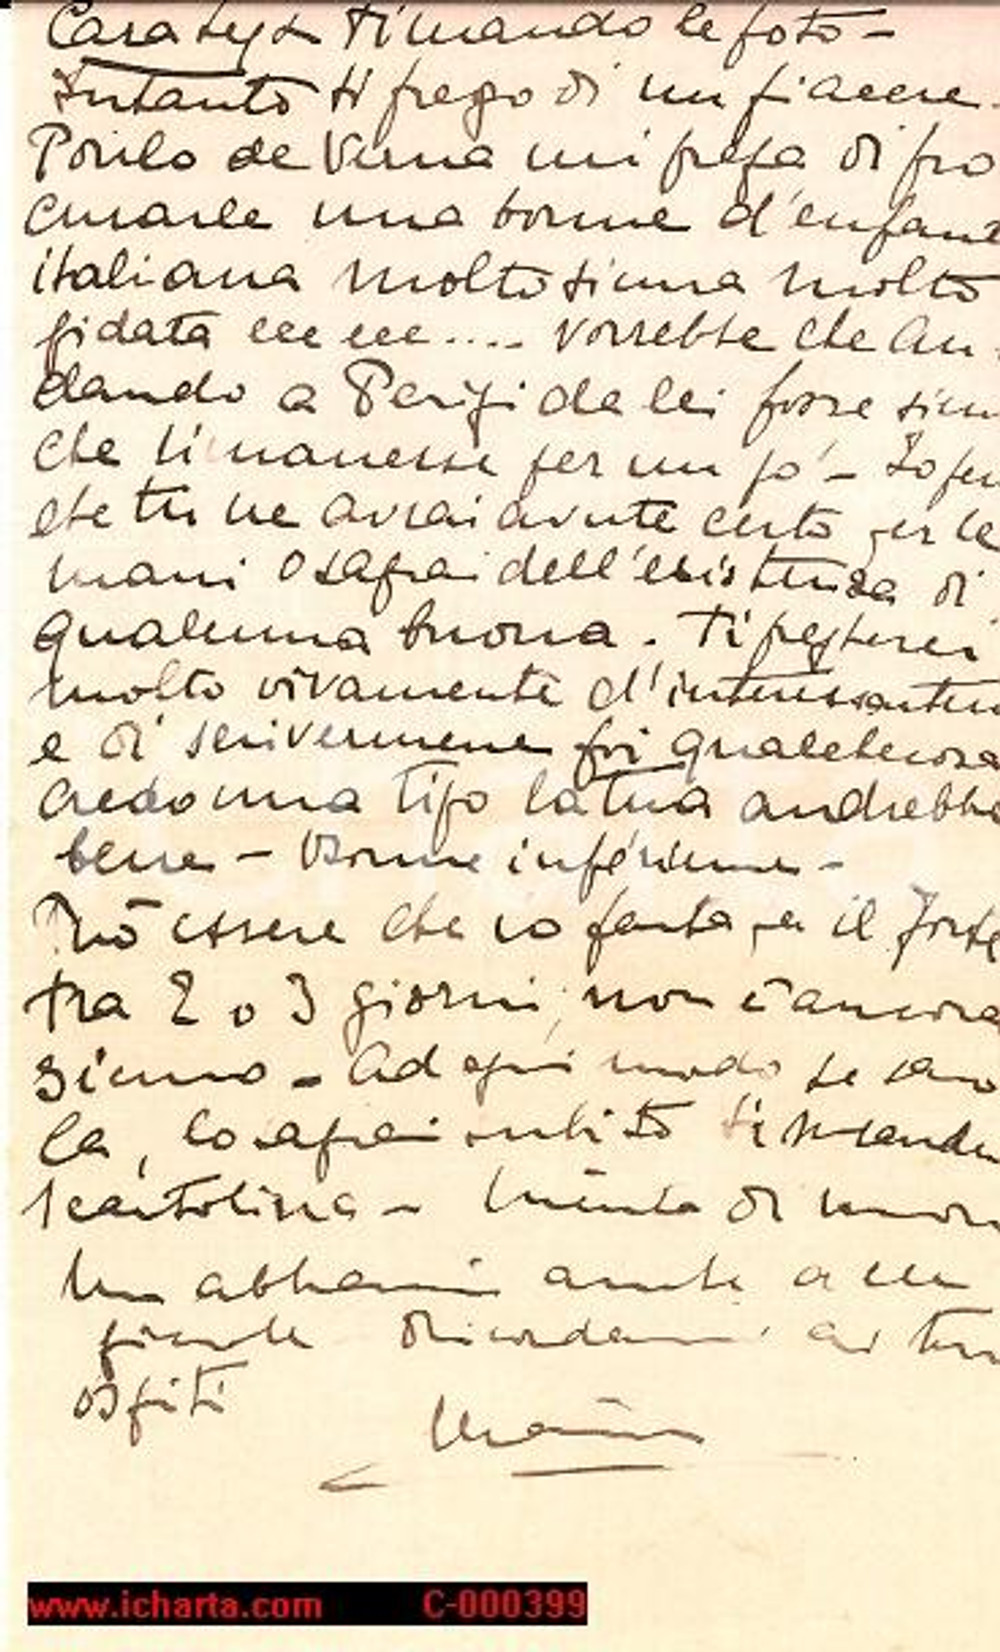 Cara Lyda ti mando le foto -
Intanto ti prego di un piacere.
de Vienna mi prega di pro
curarle una bonne d'enfant
italiana molto sicura molto
fidata ecc ecc.... vorrebbe che an-
dando a Parigi da lei fosse sicu
che rimanesse per un po' - Io pen
che tu ne avrai avute certo per le
mani o saprai dell'esistenza di
qualcuna buona. Ti pregherei
molto vivamente d'interessarten
e di scrivermene poi qualchecosa
credo una tipo la tua andrebbe
bene - Bonne inférieure -
Può essere che io parta per il Forte
tra 2 o 3 giorni, non è ancora
sicuro - Ad ogni modo se sarò
là, lo saprai subito ti mander
1 cartolina - di nuovo
Un anche alle
piccole ricordami ai tuoi
ospiti
www.icharta.com C-000399